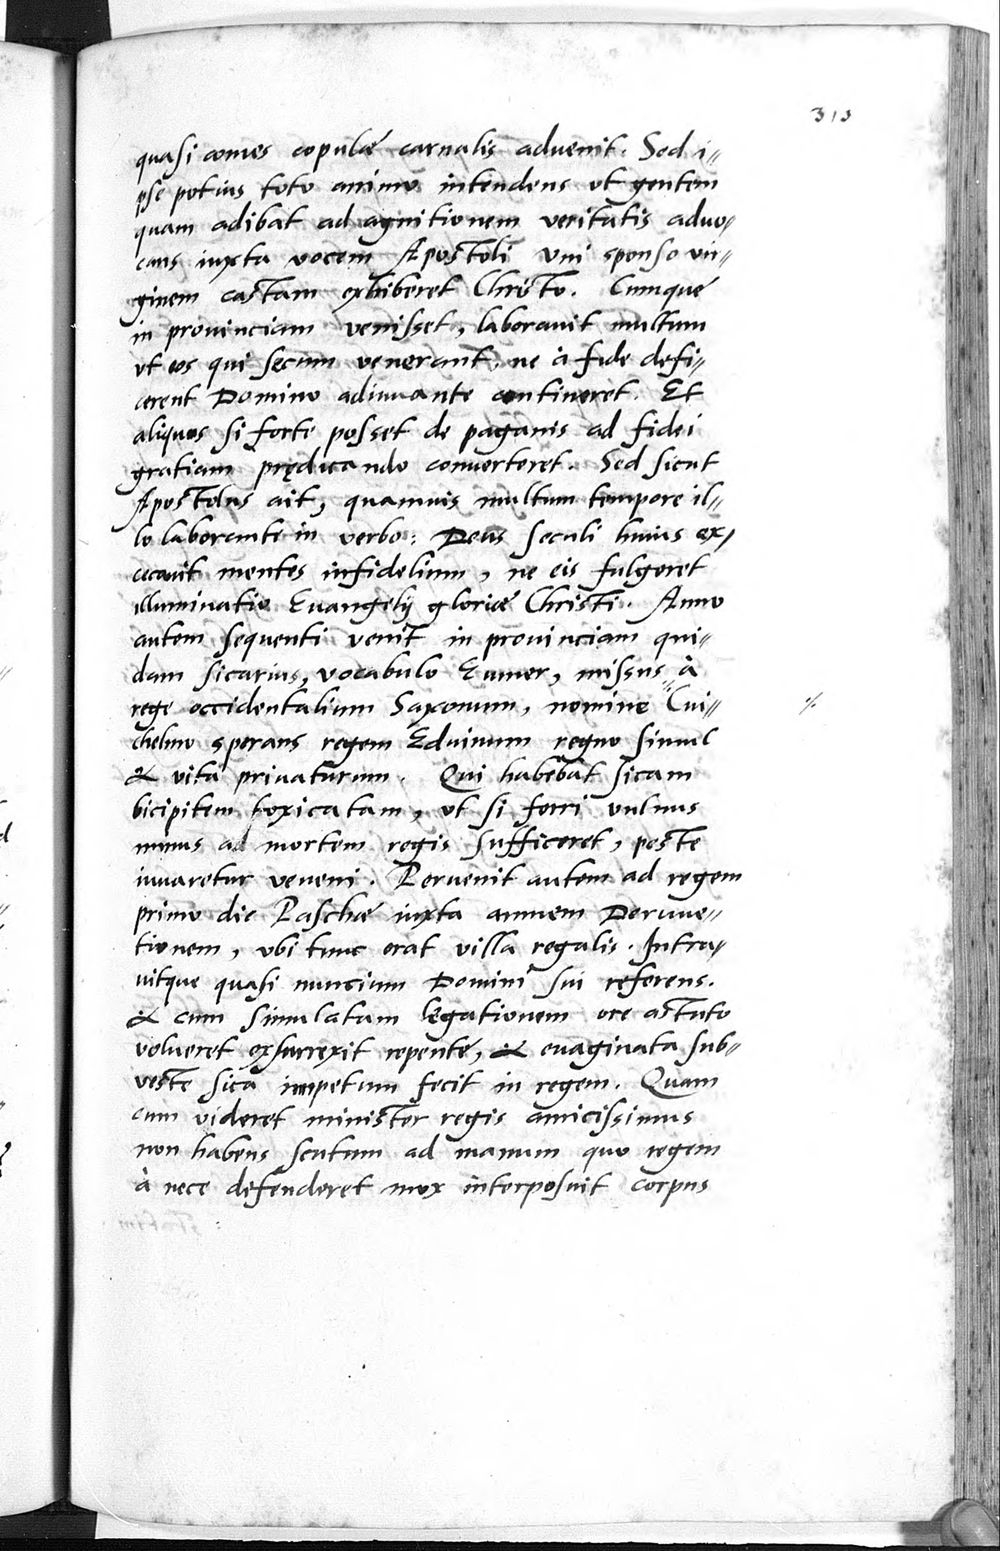 313
quasi comes copulæ carnalis aduenit. Sed i"
pse potius toto animo intendens ut gentem
quam adibat ad agnitionem veritatis aduo"
cans iuxta vocem Apostoli uni sponso vir"
ginem castam exhiberet Christo. Cumque
in prouinciam venisset, laborauit multum
vt eos qui secum venerant, ne à fide defi"
cerent Domino adiuuante contineret. Et
aliquos si forte posset de paganis ad fidei
gratiam prędicando conuerteret. Sed sicut
Apostolus ait, quamuis multum tempore il"
lo laborante in verbo: Deus seculi huius ex,
cecauit mentes infidelium, ne eis fulgeret
illuminatio Euangelij gloriæ Christi. Anno
autem sequenti venit in prouinciam qui"
dam sicarius, vocabulo Eumer, missus à
rege occidentalium Saxonum, nomine Cui"
chelmo sperans regem Eduinum regno simul
& vitâ priuaturum. Qui habebat sicam
bicipitem toxicatam, ut si ferri vulnus
minus ad mortem regis sufficeret, peste
iuuaretur veneni. Peruenit autem ad regem
primo die Paschæ iuxta amnem Deruue"
tionem, vbi tunc erat villa regalis. Intra"
uitque quasi nuncium Domini sui referens.
& cum simulatam legationem ore astuto
volueret exsurrexit repente, & euaginata sub"
veste sica impetum fecit in regem. Quam
cum videret minister regis amicissimus
non habens scutum ad manum quo regem
à nece defenderet mox interposuit corpus